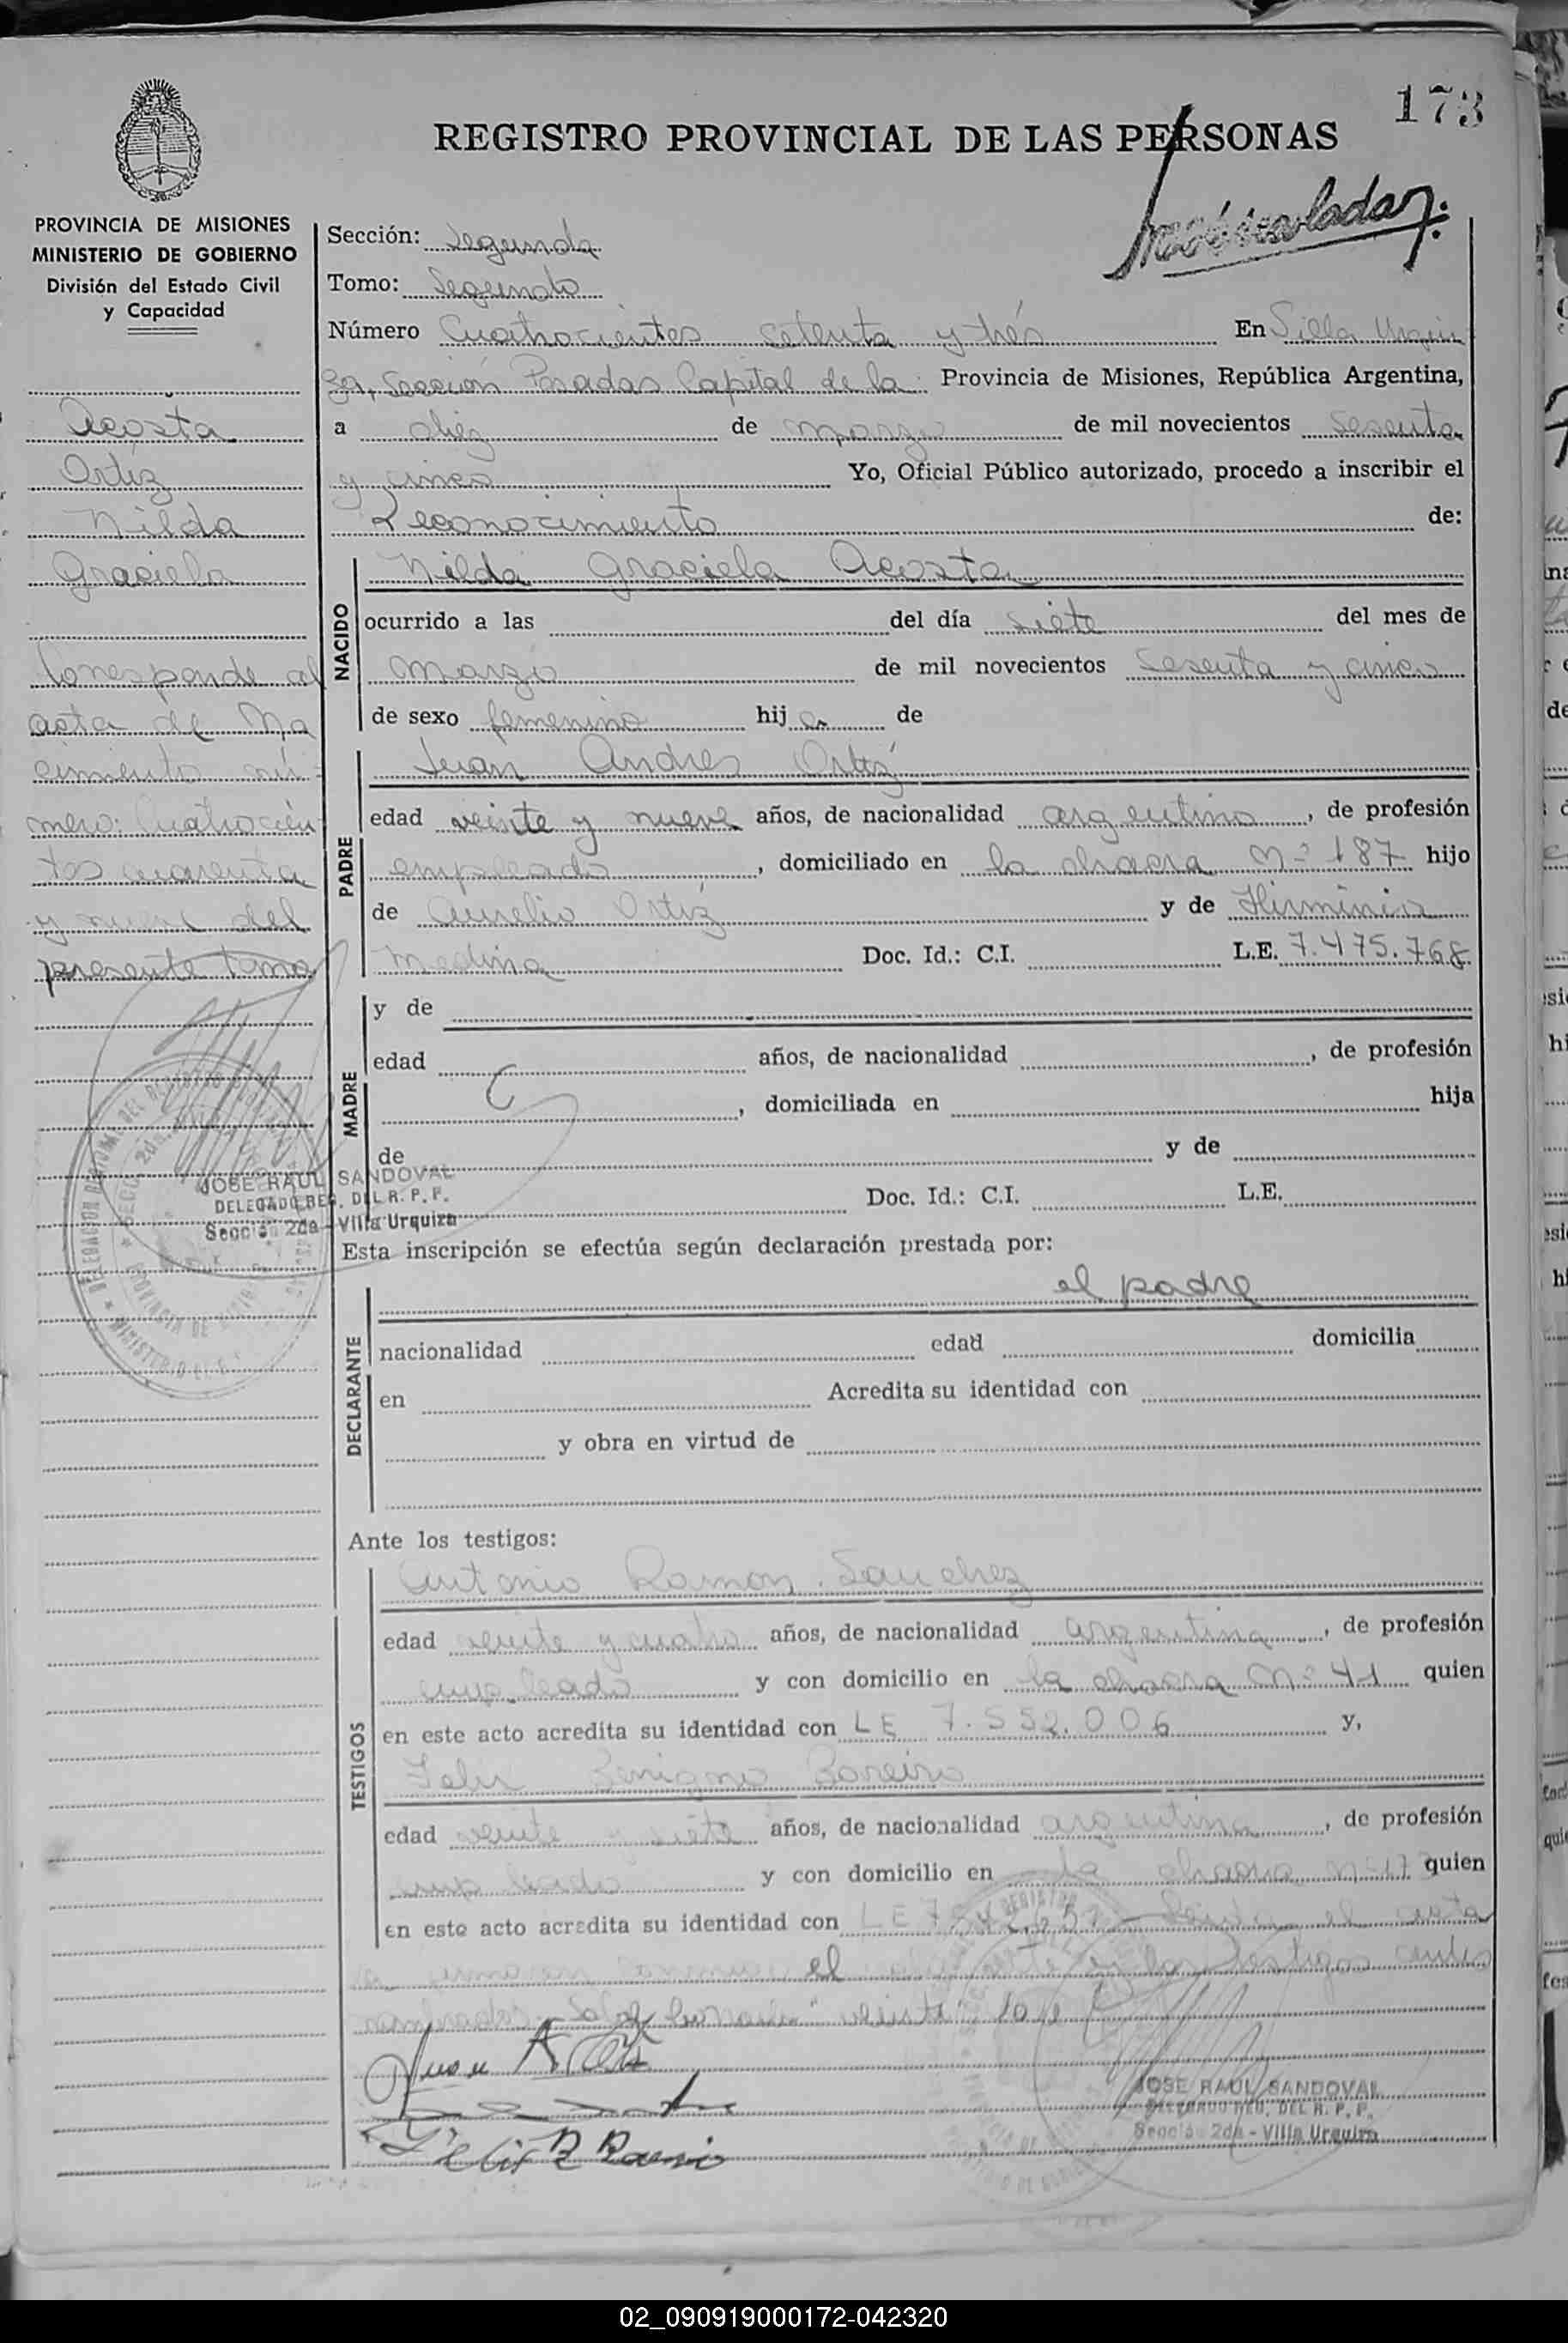 173
REGISTRO PROVINCIAL DE LAS PERSONAS
PROVINCIA DE MISIONES
MINISTERIO DE GOBIERNO
División del Estado Civil
y Capacidad
Acosta
Ortíz
Nilda
Graciela
Corresponde al
acta de Na
cimiento nú-
mero: Cuatrocien
tos cuarenta
y nueve del
presente tomo
JOSE RAUL SANDOVAL
DELEGADO REG. DEL R. P. P.
Sección 2da - Villa Urquiza
Sección: Segunda
Tomo: Segundo
Número Cuatrocientos setenta y trés En Villa Urqui
za, Sección Posadas Capital de la Provincia de Misiones, República Argentina,
a diez de marzo de mil novecientos sesenta
y cinco Yo, Oficial Público autorizado, procedo a inscribir el
Reconocimiento de:
NACIDO
Nilda Graciela Acosta
ocurrido a las del día siete del mes de
marzo de mil novecientos sesenta y cinco
de sexo femenino hij a de
PADRE
Juan Andres Ortíz
edad veinte y nueve años, de nacionalidad argentino, de profesión
empleado, domiciliado en la chacra Nº 187 hijo
de Aurelio Ortíz y de Hirminia
Medina Doc. Id.: C.I. L.E. 7.475.768
MADRE
y de
edad años, de nacionalidad , de profesión
, domiciliada en hija
de y de
Doc. Id.: C.I. L.E.
Esta inscripción se efectúa según declaración prestada por:
DECLARANTE
el padre
nacionalidad edad domicilia
en Acredita su identidad con
y obra en virtud de
Ante los testigos:
TESTIGOS
Antonio Ramon Sanchez
edad veinte y cuatro años, de nacionalidad argentina, de profesión
empleado y con domicilio en la chacra Nº 41 quien
en este acto acredita su identidad con LE 7.552.006 y,
Felix Benigno Boreiro
edad veinte y siete años, de nacionalidad argentina, de profesión
empleado y con domicilio en la chacra Nº 17 quien
en este acto acredita su identidad con LE acta
el testigos
JOSE RAUL SANDOVAL
DELEGADO REG. DEL R. P. P.
Sección 2da - Villa Urquiza
02_090919000172-042320